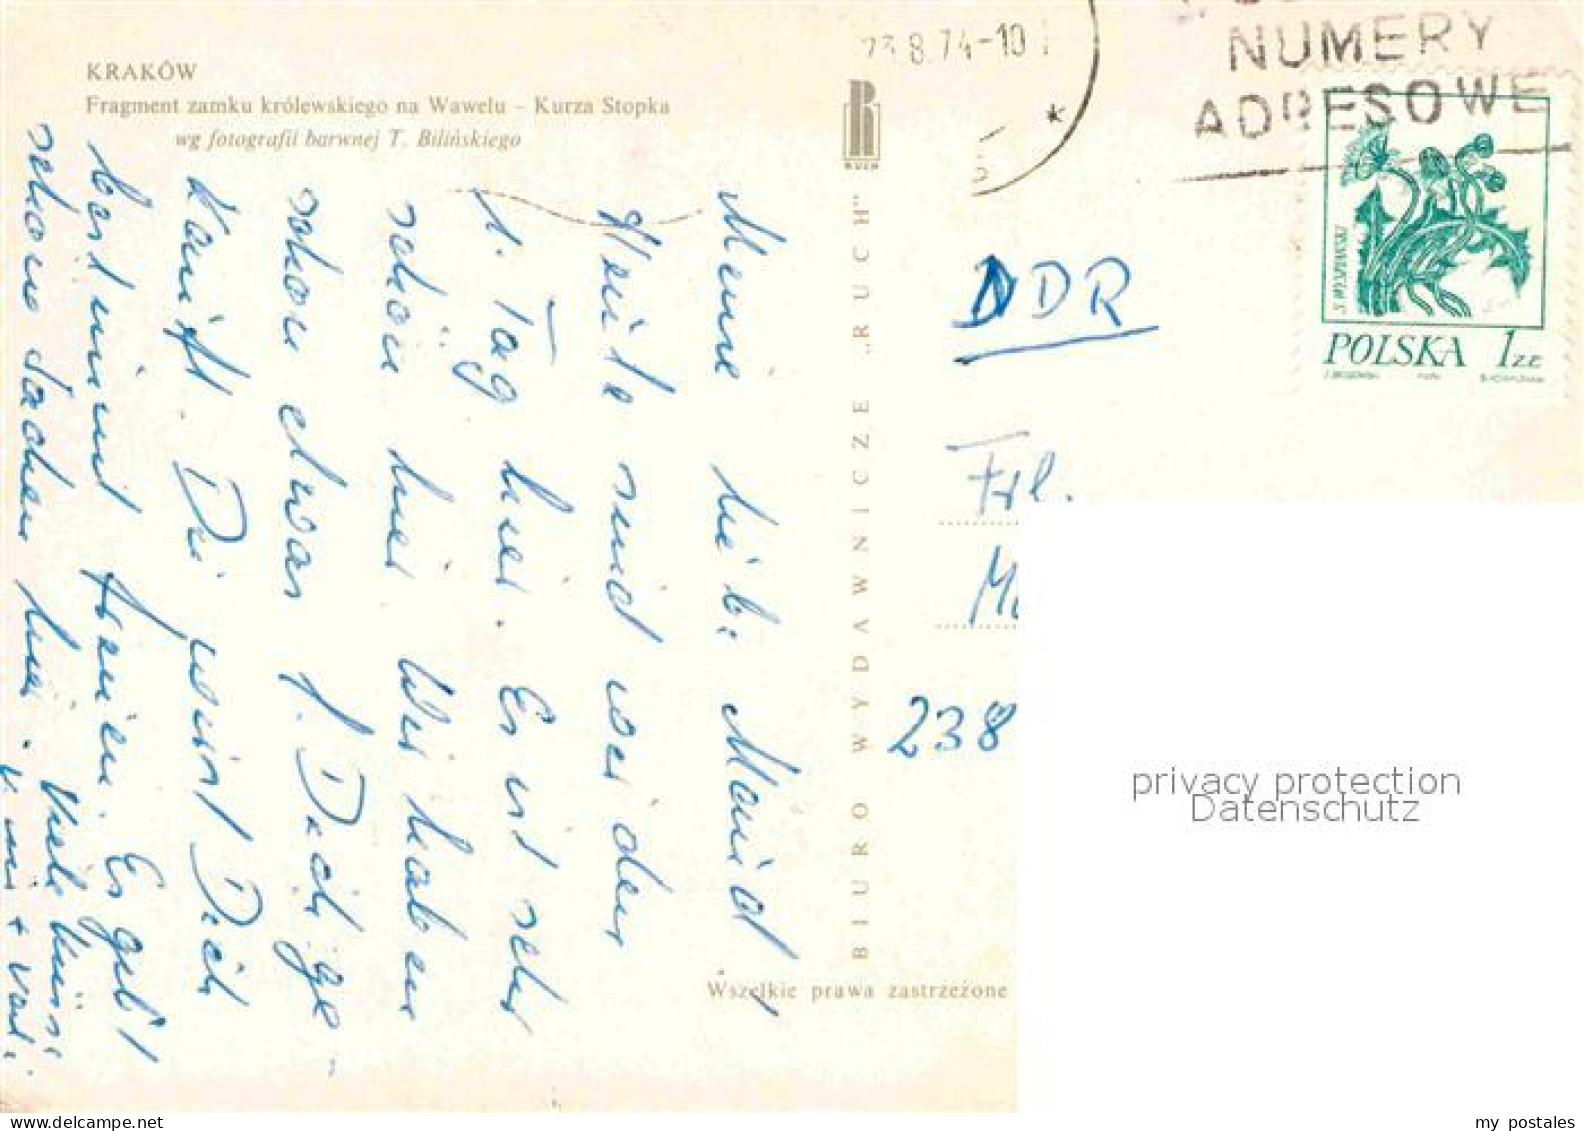 KRAKÓW
Fragment zamku królewskiego na Wawelu – Kurza Stopka
wg fotografii barwnej T. Bilińskiego
Meine liebe Mauid,
Heute sind wir den
1. Tag hier. Es ist sehr
schön hier. Wir haben
schon etwas f. Dich ge-
kauft. Du wirst Dich
bestimmt freuen. Es gibt
schöne Sachen hier. Viele Küsse
v. mi + vati
BIURO WYDAWNICZE „RUCH"
RUCH
Wszelkie prawa zastrzeżone
23.8.74-10
NUMERY
ADRESOWE
POLSKA 1 ZŁ
DDR
Frl.
238
privacy protection
Datenschutz
my postales